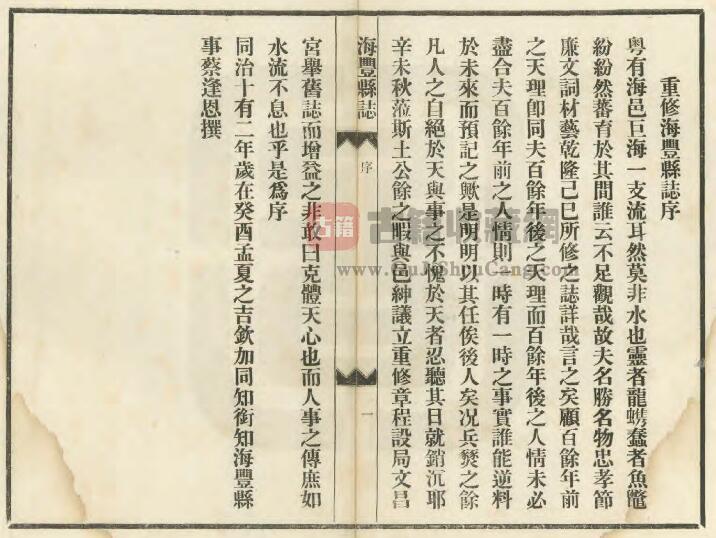 重修海豐縣誌序
粵有海邑巨海一支流耳然莫非水也靈者龍螭蠢者魚鼈
紛紛然蕃育於其間誰云不足觀哉故夫名勝名物忠孝節
廉文詞材藝乾隆己巳所修之誌詳哉言之矣顧百餘年前
之天理卽同夫百餘年後之天理而百餘年後之人情未必
盡合夫百餘年前之人情則一時有一時之事實誰能逆料
於未來而預記之歟是明明以其任俟後人矣况兵燹之餘
凡人之自絕於天與事之不愧於天者忍聽其日就銷沉耶
辛未秋蒞斯土公餘之暇與邑紳議立重修章程設局文昌
海豐縣誌
序
一
宮舉舊誌而增益之非敢曰克體天心也而人事之傳庶如
水流不息也乎是爲序
同治十有二年歲在癸酉孟夏之吉欽加同知銜知海豐縣
事蔡逢恩撰
古籍
古籍收藏網
www.GuJiShouCang.com